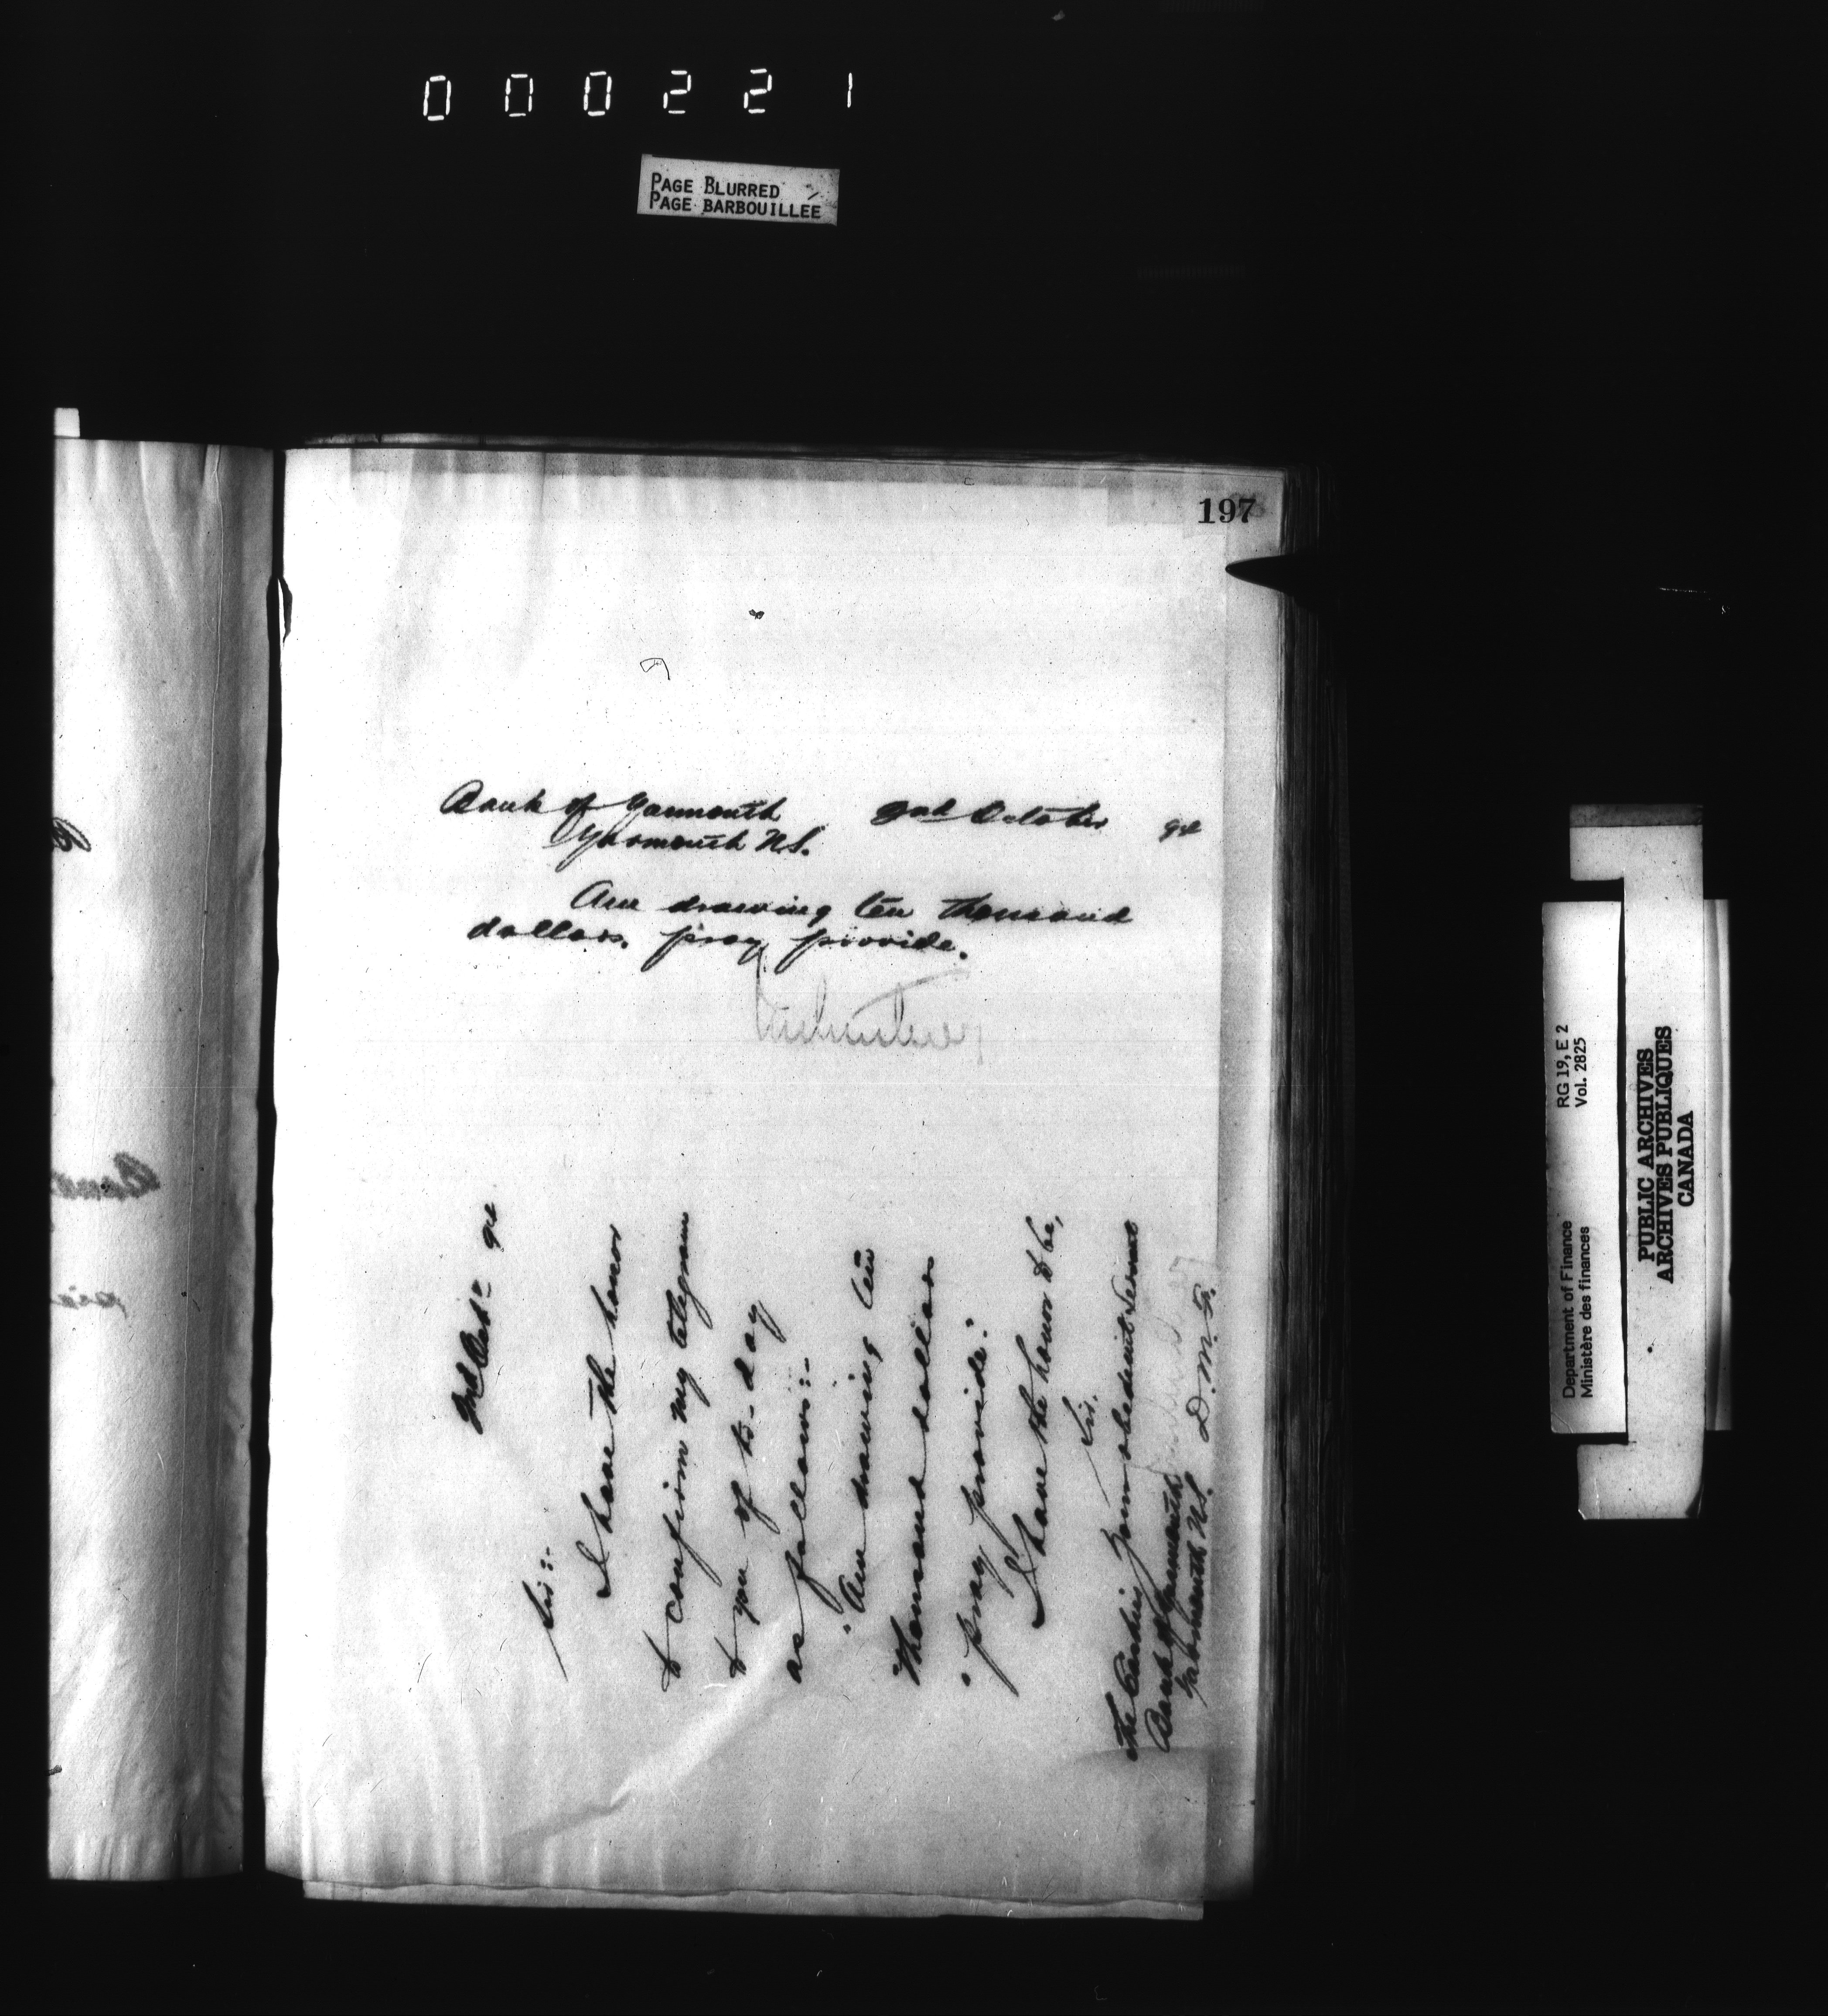 000221
PAGE BLURRED
PAGE BARBOUILLEE
197
Bank of Yarmouth 2nd October 94
Yarmouth N.S.
Am drawing ten thousand
dollars. pray provide.
2nd Octr 94
Sir:-
I have the honor
to confirm my telegram
to you of to-day
as follows:-
"Am drawing ten
"thousand dollars
"pray provide."
I have the honor to be,
Sir,
Your obedient Servant
D.M.F.
The Cashier
Bank of Yarmouth
Yarmouth N.S.
Department of Finance RG 19, E 2
Ministère des finances Vol. 2825
PUBLIC ARCHIVES
ARCHIVES PUBLIQUES
CANADA